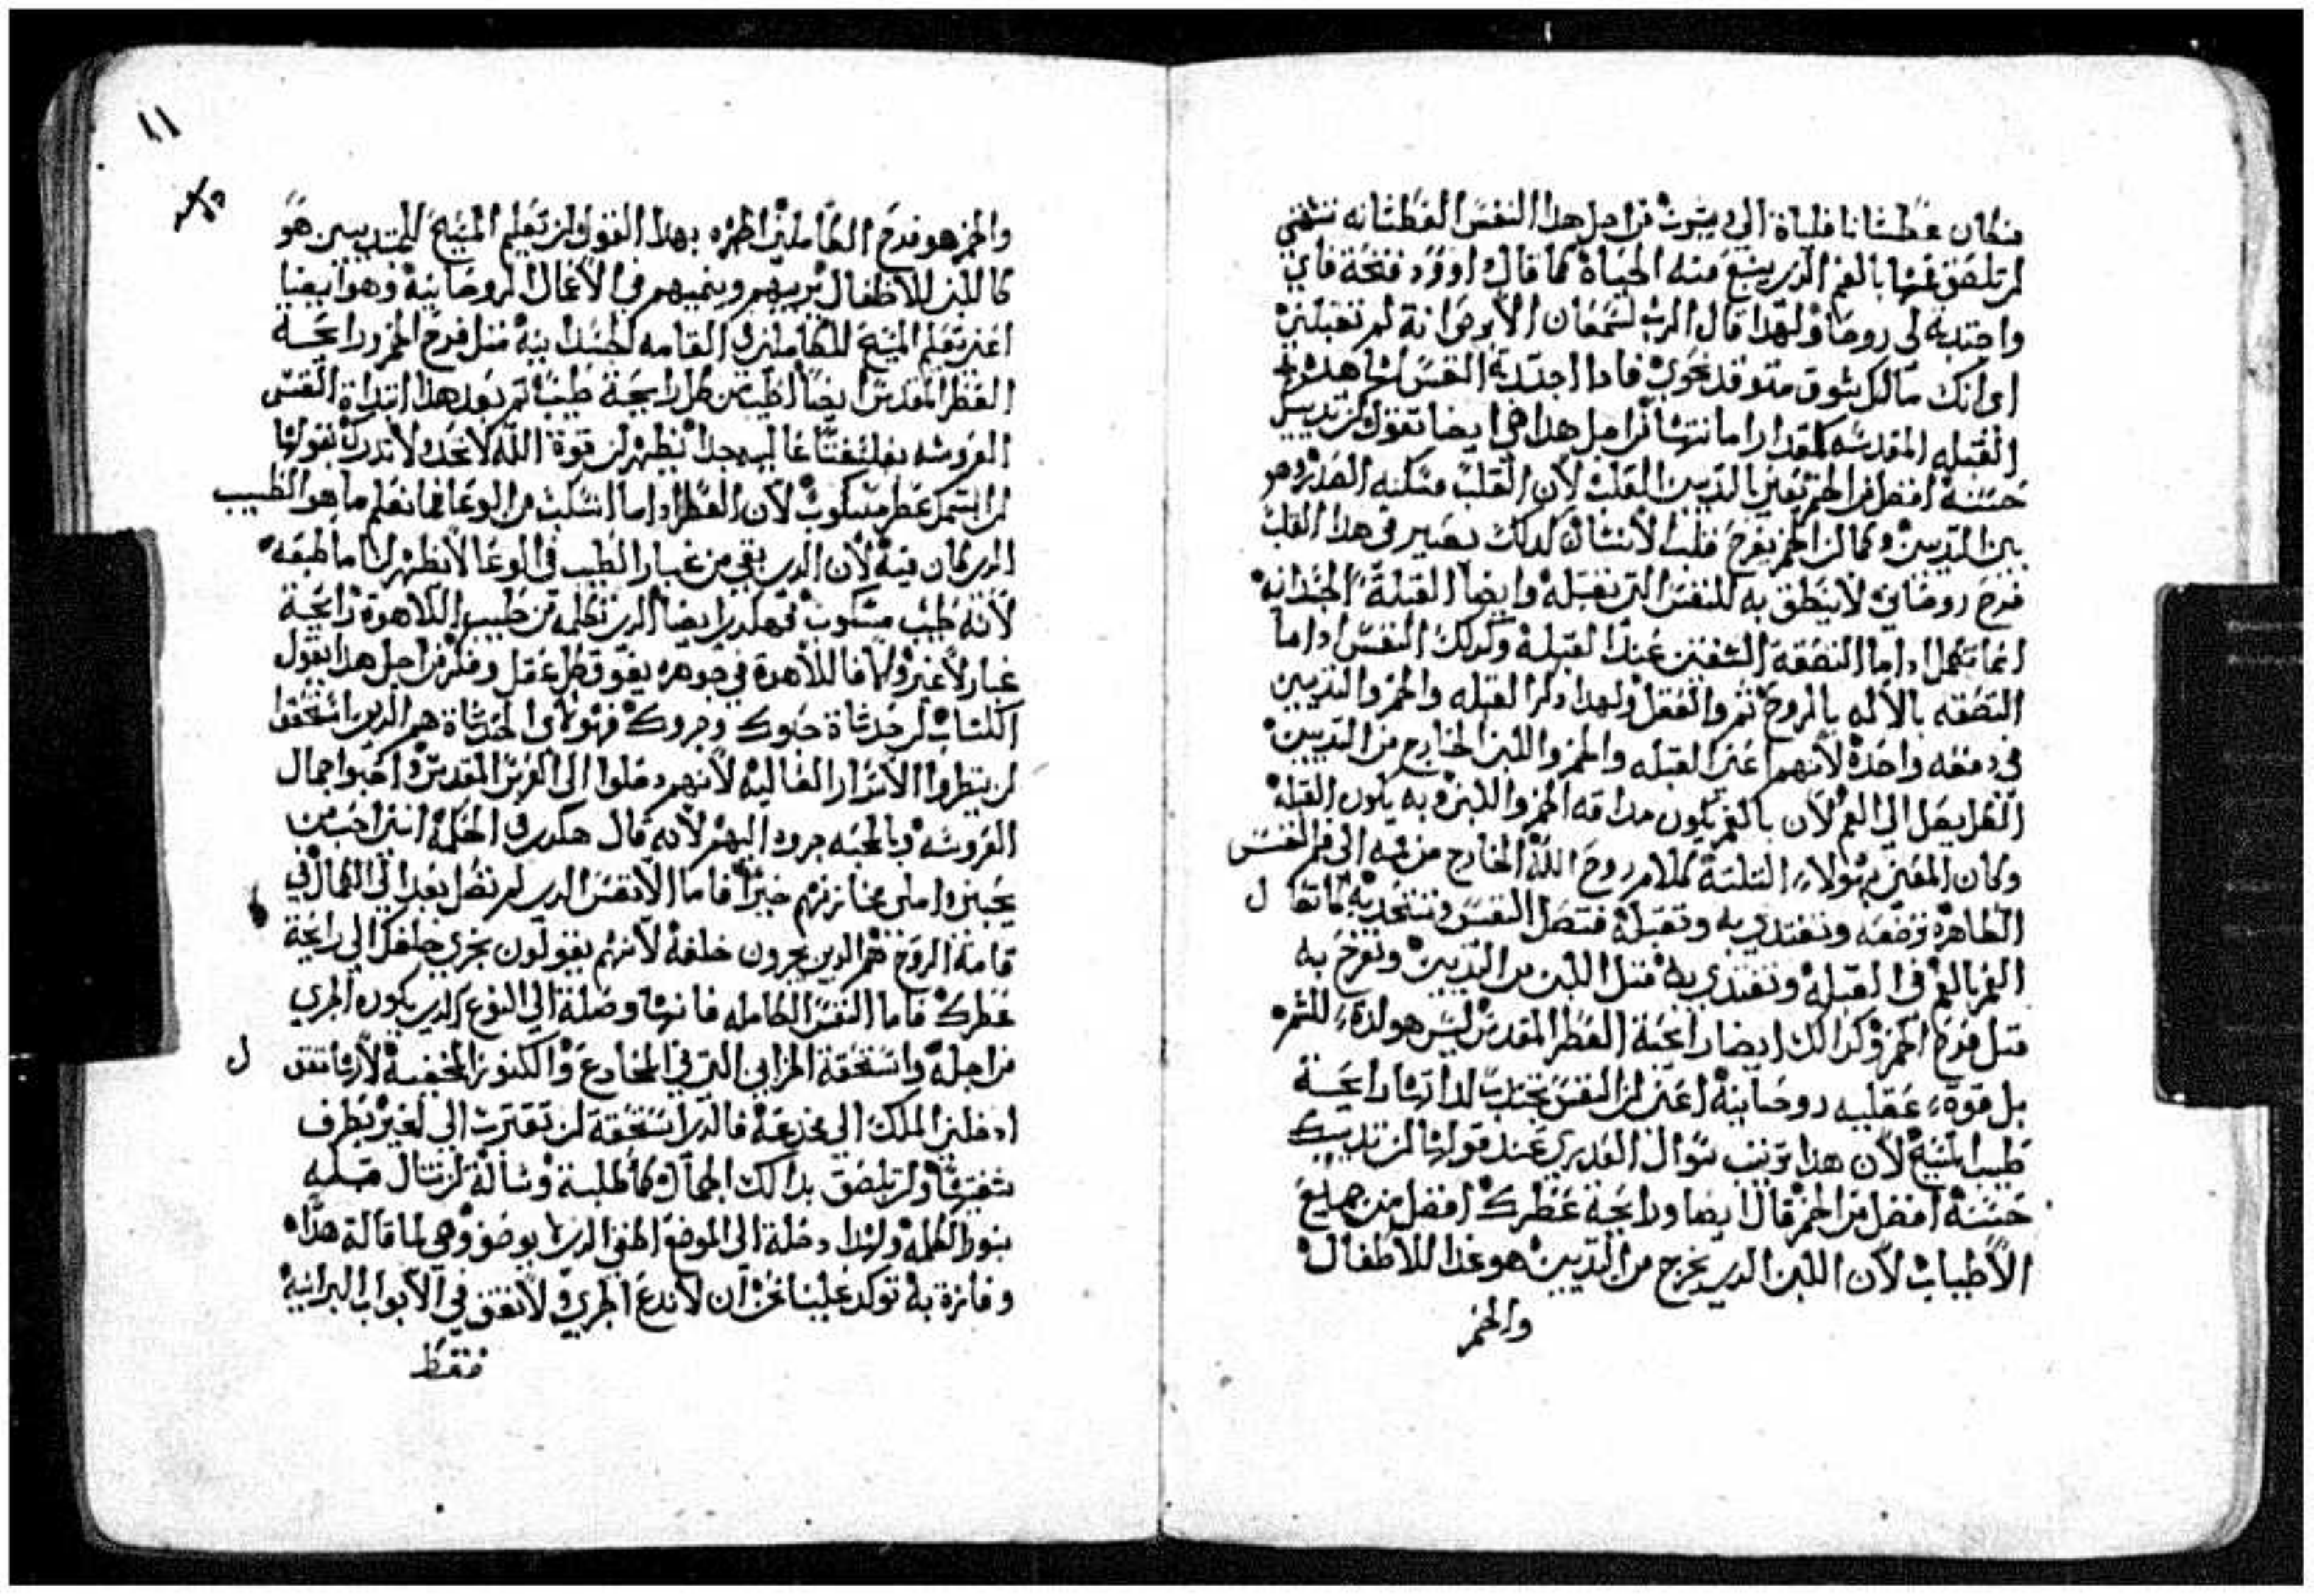 فكان عطشانا فلياة الي ويشرب من اجل هدا النفس العطشانه تشتهي
ان تلصق فمها بالفم الدي ينبع منه الحياة كما قال داوود فتحة فاي
واجتدبة لي روحا ولهدا قال الرب لسمعان الابرص انة لم تقبلني
اي انك مالك شوق متوقد نحوي فادا اجتدبة النفس لشاهدة
القبله المقدسه كمقدار امانتها من اجل هدا هي ايضا تقول ان تدييك
حسنة افضل من الخمر تعني بالتديين القلب لان القلب مسكنه الصدر وهو
بين التديين وكما ان الخمر يفرح قلب الانسان كدلك يصير في هدا القلب
فرح روحاني لا ينطق به للنفس التي تقبله وايضا القبلة الجسدانيه
انما تكمل اداما التصقة الشفتين عند القبلة وكدلك النفس اداما
التصقه بالاله بالروح تم والعقل ولهدا دكر القبله والخمر والتديين
في دفعه واحدة لانهم اعني القبله والخمر واللبن الخارج من التديين
الكل يصل الي الفم لان بالفم يكون مداقه الخمر واللبن وبه يكون القبلة
وكان المعني بهولاء التلتة كلام روح الله الخارج من فمه الي فم النفس
الطاهرة ترضعه وتغتدي به وتقبله فتصل النفس وتتحد به كما تقال
الفم بالفم في القبله وتغتدي به متل اللبن من التديين وتفرح به
متل فرح الخمر وكدالك ايضا رايحة العطر المقدس ليس هو لدة للشم
بل قوة عقليه روحانية اعني ان النفس تجتدب لداتها رايحة
طيب المسيح لان هدا ترتيب سوال العديري عند قولها ان تدييك
حسنة افضل من الخمر قال ايضا ورايحة عطرك افضل من جميع
الاطياب لان اللبن الدي يخرج من التديين هو غدا للاطفال
والخمر
١١
والخمر هو فرح الكاملين اظهره بهدا القول ان تعليم المسيح للمبتديين هو
كاللبن للاطفال يربيهم وينميهم في الاعمال الروحانية وهو ايضا
اعني تعليم المسيح للكاملين في القامه الجسدانية متل فرح الخمر ورايحة
العطر المقدس ايضا اطيب من كل رايحة طيب تم بعد هدا ابتداة النفس
العروسه بفلسفتا عاليه جدا تظهر ان قوة الله لا تحد ولا تدرك بقولها
ان اسمك عطر مسكوب لان العطر اداما انسكب من الوعا فما نعلم ما هو الطيب
الدي كان فية لان الدي بقي من غبار الطيب في الوعا لا يظهر لنا ما طبعه
لانه طيب مسكوب فهكدي ايضا الدي نعلمه من طيب اللاهوة رايحة
غبار لا غير ولما فاللاهوة في جوهره يفوق كل عقل وفكر من اجل هدا يقول
الكتاب ان حدتاة حبوك وجروك فهولاي الحدتاة هم الدين استحقوا
ان ينظروا الاسرار العاليه لانهم دخلوا الي العرس المقدس واحبوا جمال
العروسه وبالمحبه جروه اليهم لانه قال هكدي في الحكمة انني احب من
يحبني واملي مخازنهم خيرا فاما الانفس الدي لم تصل بعد الي الكمال في
قامة الروح هم الدين يجرون خلفة لانهم يقولون نجري خلفك الي رايحة
عطرك فاما النفس الكامله فانها وصلة الي النوع الدي يكون الجري
من اجلة واستحقة المزايي التي في المخادع والكنوز المخفية لانها تقول
ادخلني الملك الي مخدعة فالدي استحقة ان تقترب الي الخير بطرف
شفتيها وان تلصق بدالك الجمال وكما طلبة وسالة ان تنال قبله
بنور الكلمه ولهدا دخلة الي الموضع الخفي الدي لا يوصف وهي لما قالة هدا
وفازة به توكد علينا نحن ان لا ندع الجري ولا نقف في الابواب البرانية
فقط